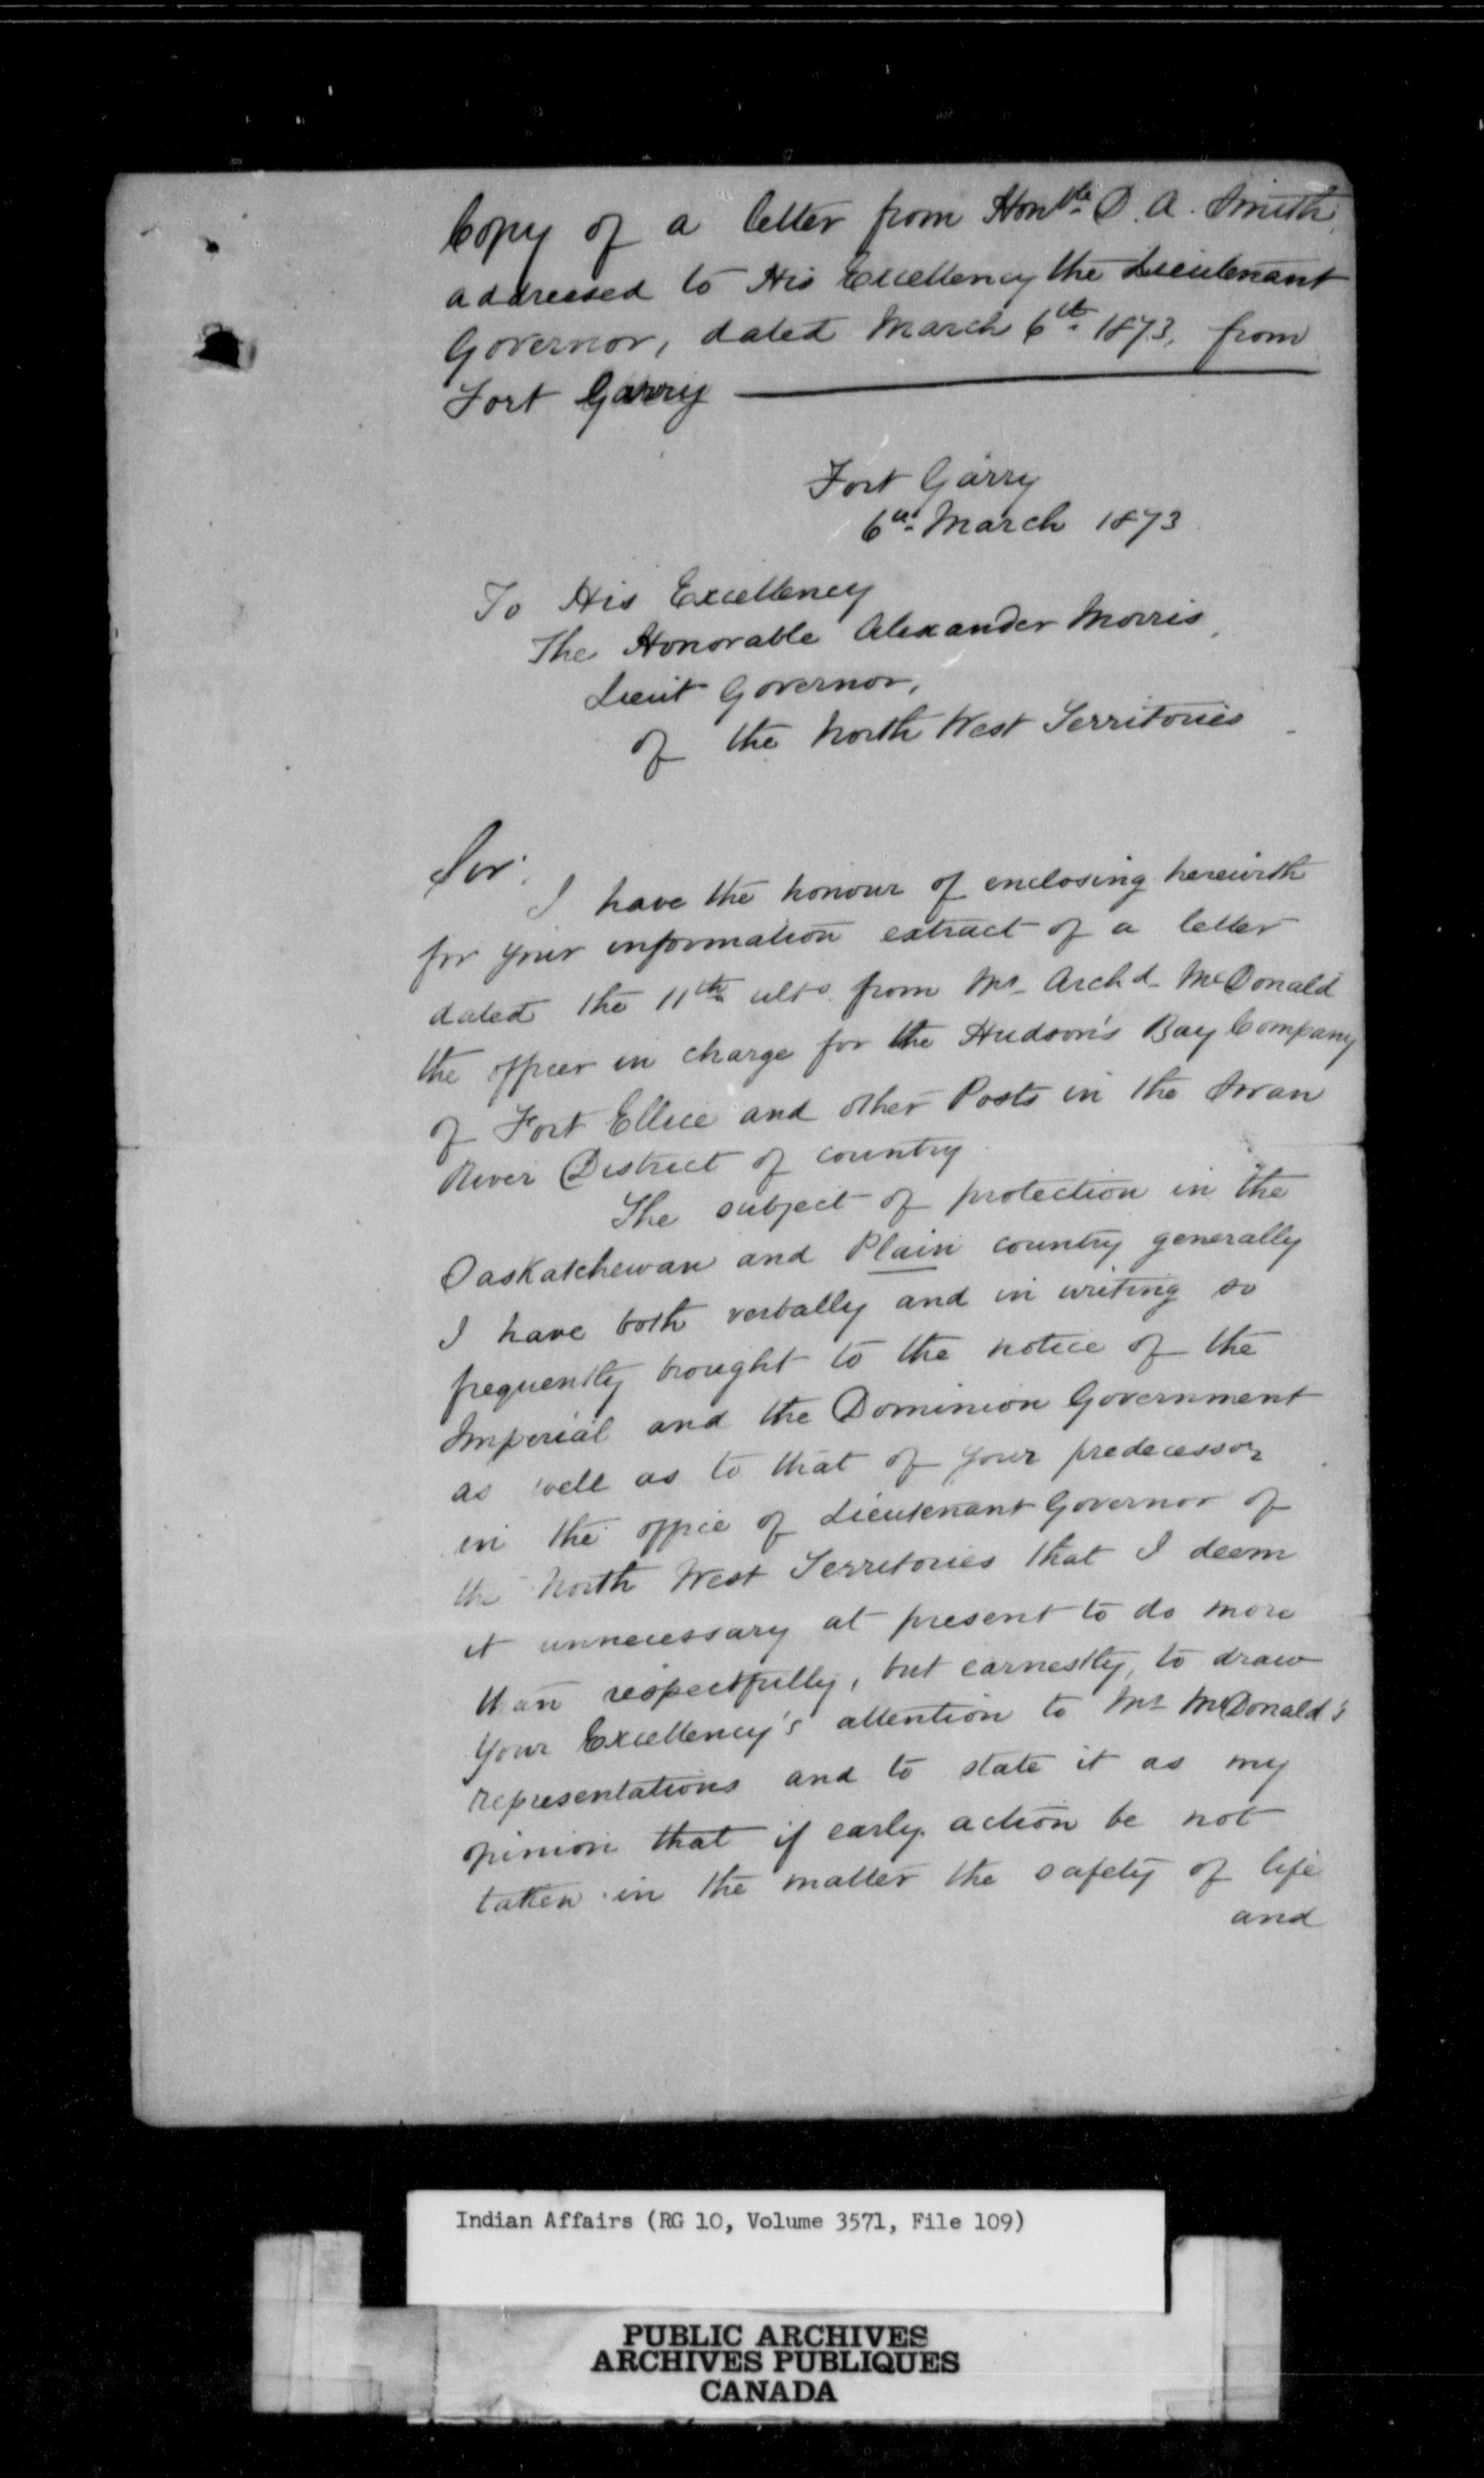 Copy of a letter from Honble D. A. Smith,
addressed to His Excellency the Lieutenant
Governor, dated March 6th 1873, from
Fort Garry
Fort Garry
6th March 1873
To His Excellency
The Honorable Alexander Morris,
Lieut Governor,
of the North West Territories
Sir,
I have the honour of enclosing herewith
for your information extract of a letter
dated the 11th ulto from Mr Archd McDonald
the officer in charge for the Hudson's Bay Company
of Fort Ellice and other Posts in the Swan
River District of country
The subject of protection in the
Saskatchewan and Plain country generally
I have both verbally and in writing so
frequently brought to the notice of the
Imperial and the Dominion Government
as well as to that of your predecessor
in the office of Lieutenant Governor of
the North West Territories that I deem
it unnecessary at present to do more
than respectfully, but earnestly, to draw
Your Excellency's attention to Mr McDonald's
representations and to state it as my
opinion that if early action be not
taken in the matter the safety of life
and
Indian Affairs (RG 10, Volume 3571, File 109)
PUBLIC ARCHIVES
ARCHIVES PUBLIQUES
CANADA